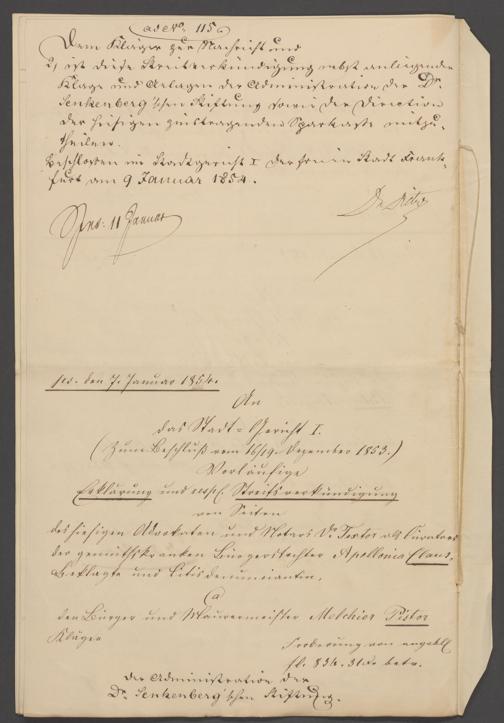 ad No. 115.
Dem Kläger zur Nachricht und
2, ist diese Streitverkündigung nebst anliegender
Klage und Anlagen der Administration der Dr.
Senkenberg'schen Stiftung sowie der Direction
der hiesigen zinstragenden Sparkasse mitzu-
theilen.
Beschlossen im Stadtgericht I der freien Stadt Frank-
furt am 9 Januar 1854.
11 Januar
ps. den 7. Januar 1854.
An
das Stadt-Gericht I.
(Zum Beschluß vom 16/19. Dezember 1853.)
Vorläufige
Erklärung und resp. Streitsverkündigung
von Seiten
des hiesigen Advokaten und Notars Dr. Textor als Curators
der gemüthskranken Bürgerstochter Apollonia Claus,
Beklagte und Litisdenunciantin,
Ca
den Bürger und Maurermeister Melchior Pistor
Kläger
Forderung von angebl.
fl. 834. betr.
der Administration der
Dr. Senkenberg'schen Stiftung.